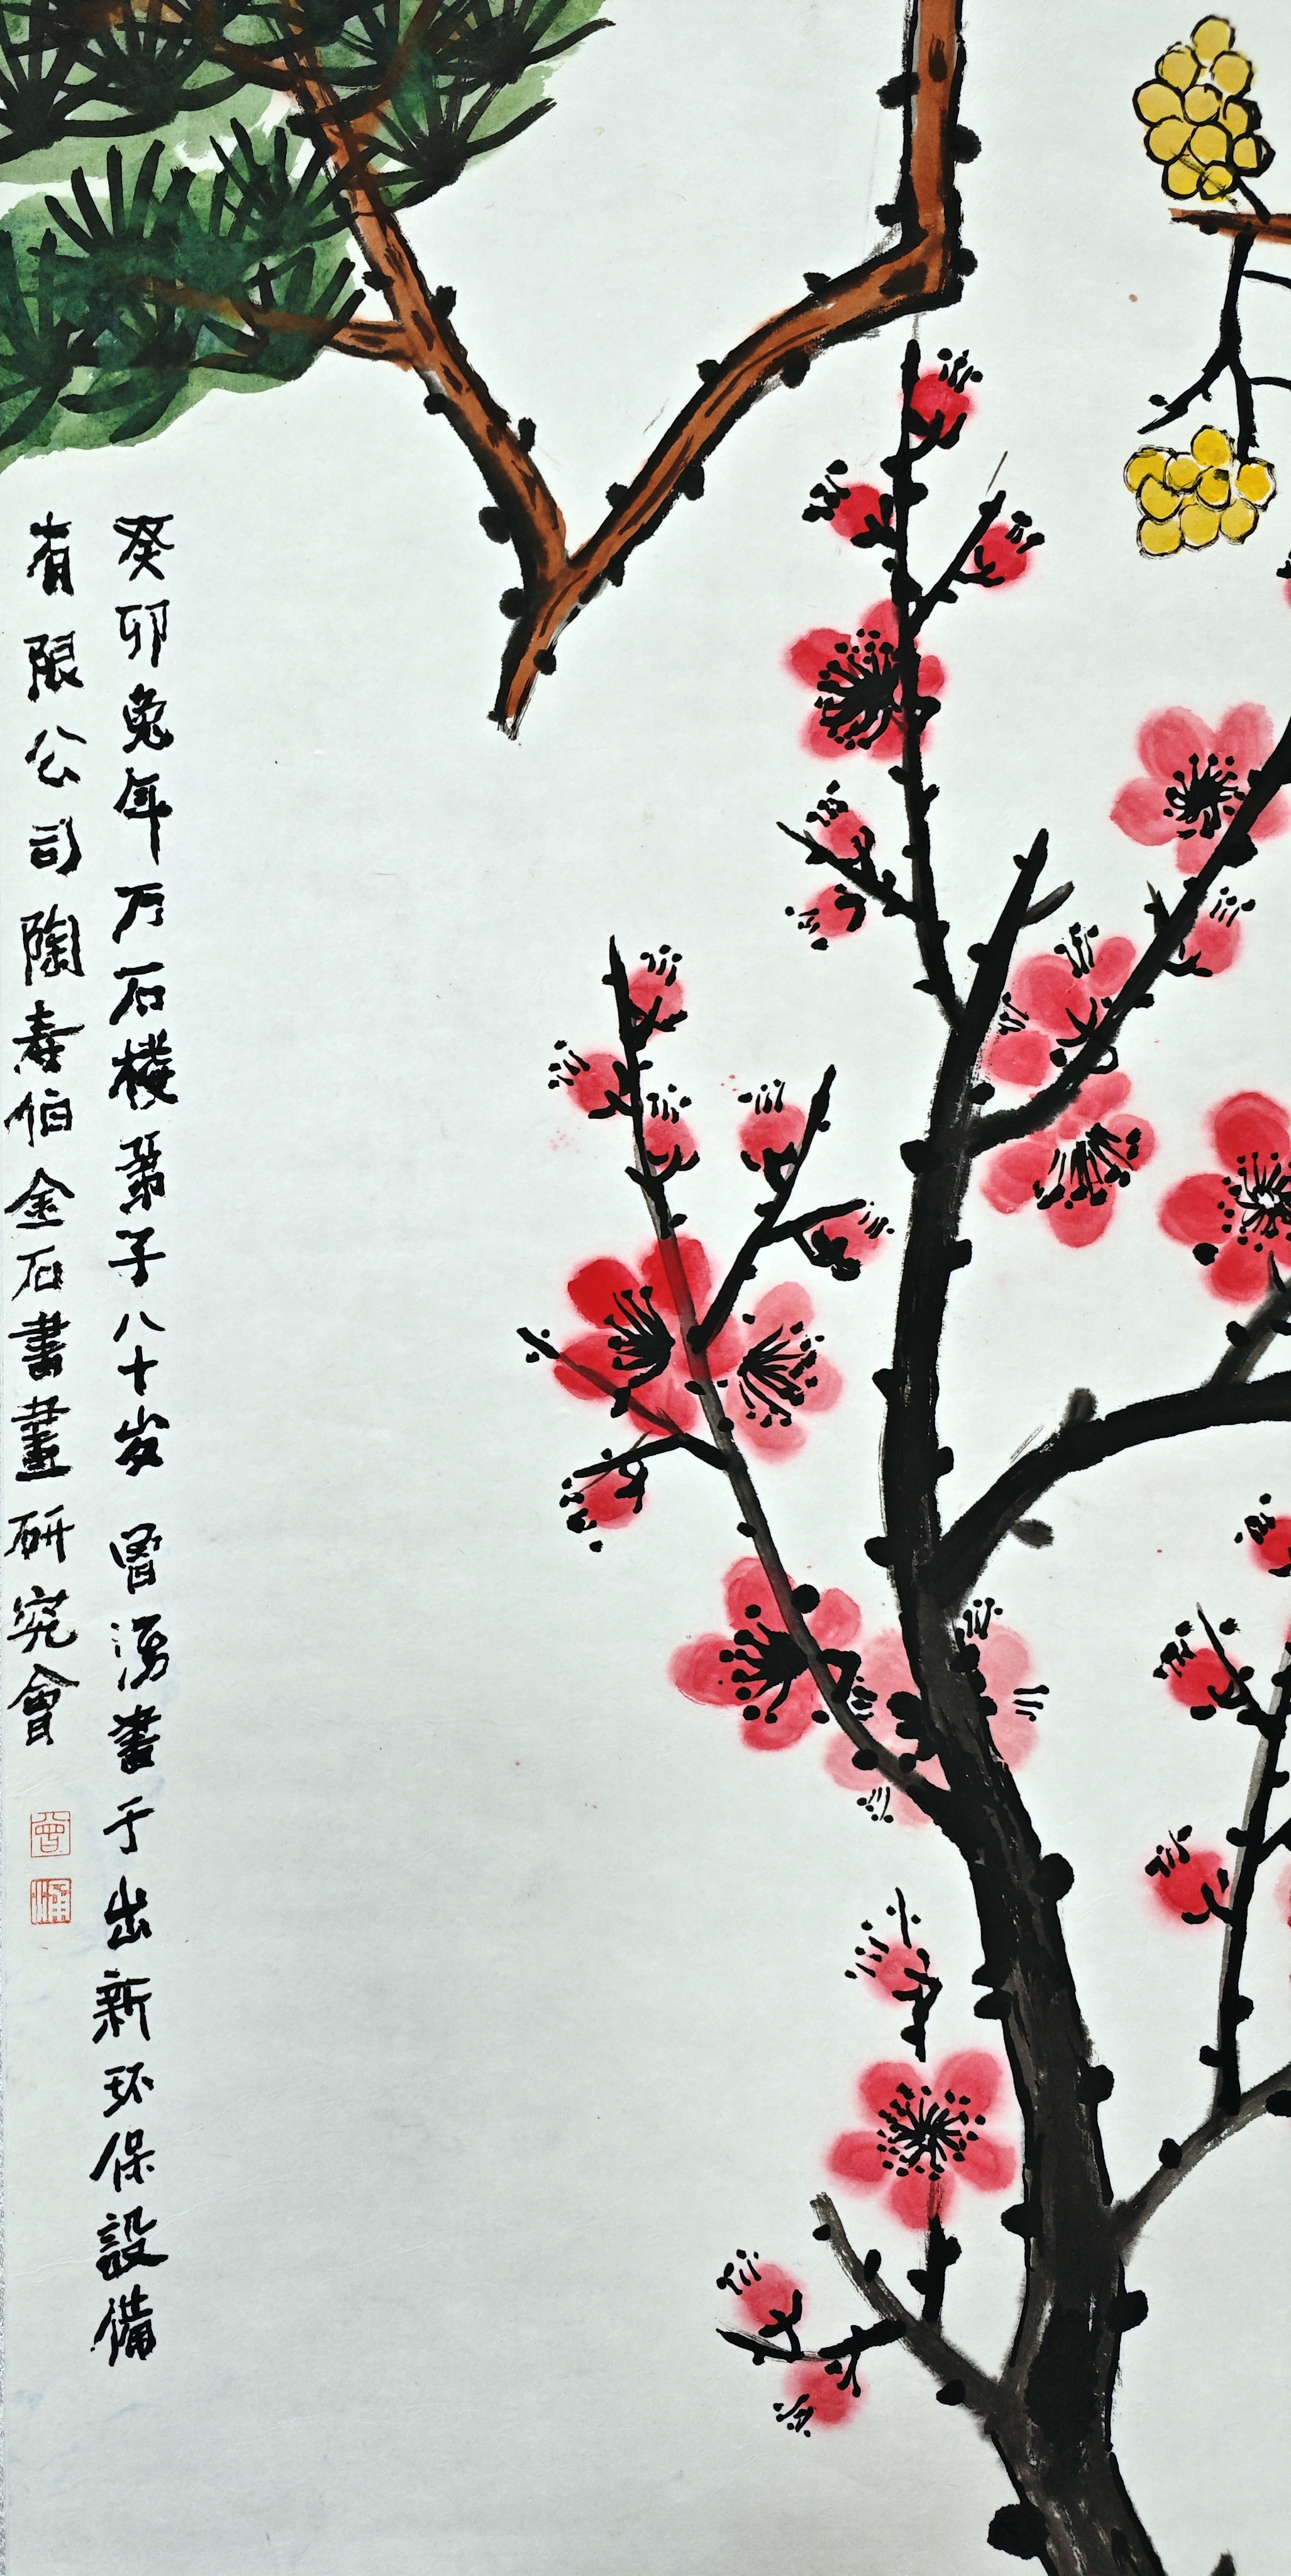 癸卯兔年万石楼弟子八十岁曾湧畫于出新环保設備
有限公司陶寿伯金石書畫研究會
曾
湧